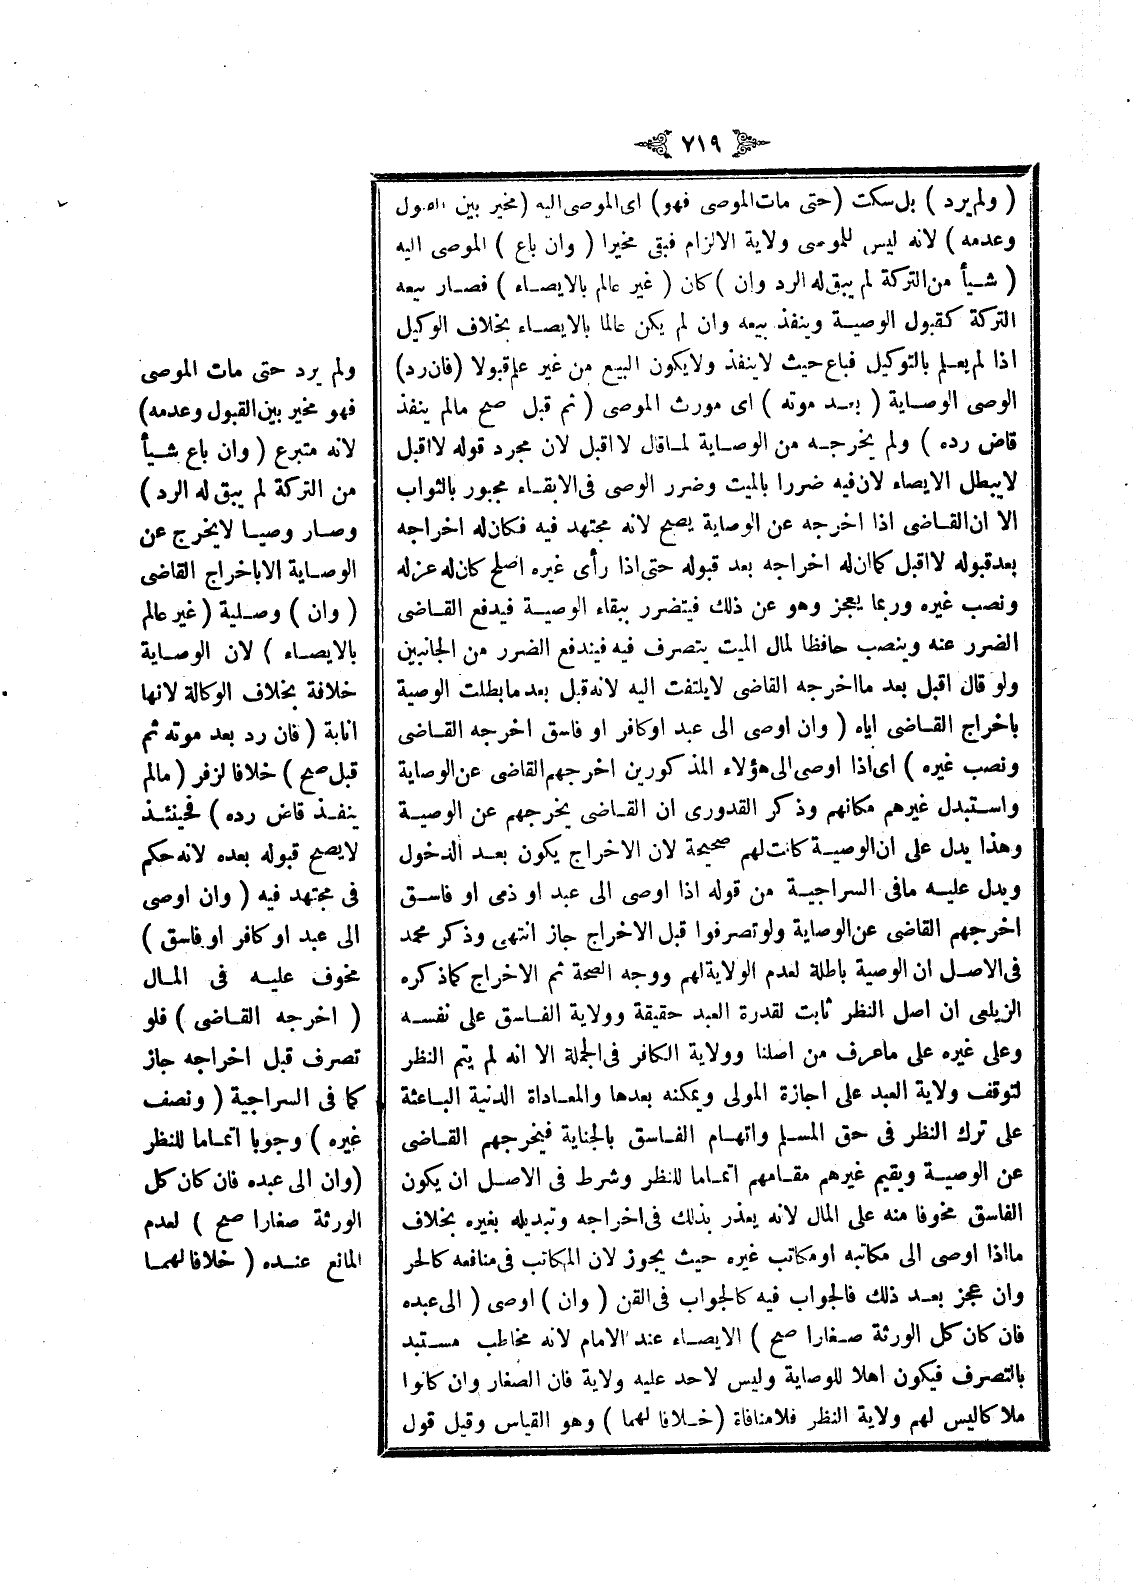 ٧١٩
( ولم يرد ) بل سكت (حتى مات الموصى فهو) اى الموصى اليه (مخير بين القبول
وعدمه ) لانه ليس للموصى ولاية الالزام فبقى مخيرا ( وان باع ) الموصى اليه
( شيأ من التركة لم يبق له الرد وان ) كان ( غير عالم بالايصاء ) فصار بيعه
التركة كقبول الوصية وينفذ بيعه وان لم يكن عالما بالايصاء بخلاف الوكيل
اذا لم يعلم بالتوكيل فباع حيث لاينفذ ولايكون البيع من غير علم قبولا (فان رد)
الوصى الوصاية ( بعد موته ) اى مورث الموصى ( ثم قبل صح مالم ينفذ
قاض رده ) ولم يخرجه من الوصاية لما قال لا اقبل لان مجرد قوله لا اقبل
لايبطل الايصاء لان فيه ضررا بالميت وضرر الوصى فى الابقاء مجبور بالثواب
الا ان القاضى اذا اخرجه عن الوصاية يصح لانه مجتهد فيه فكان له اخراجه
بعد قبوله لا اقبل كما ان له اخراجه بعد قبوله حتى اذا رأى غيره اصلح كان له عزله
ونصب غيره وربما يعجز وهو عن ذلك فيتضرر ببقاء الوصية فيدفع القاضى
الضرر عنه وينصب حافظا لمال الميت يتصرف فيه فيندفع الضرر من الجانبين
ولو قال اقبل بعد ما اخرجه القاضى لايلتفت اليه لانه قبل بعد ما بطلت الوصية
باخراج القاضى اياه ( وان اوصى الى عبد او كافر او فاسق اخرجه القاضى
ونصب غيره ) اى اذا اوصى الى هؤلاء المذكورين اخرجهم القاضى عن الوصاية
واستبدل غيرهم مكانهم وذكر القدورى ان القاضى يخرجهم عن الوصية
وهذا يدل على ان الوصية كانت لهم صحيحة لان الاخراج يكون بعد الدخول
ويدل عليه مافى السراجية من قوله اذا اوصى الى عبد او ذمى او فاسق
اخرجهم القاضى عن الوصاية ولو تصرفوا قبل الاخراج جاز انتهى وذكر محمد
فى الاصل ان الوصية باطلة لعدم الولاية لهم ووجه الصحة ثم الاخراج كماذكره
الزيلعى ان اصل النظر ثابت لقدرة العبد حقيقة وولاية الفاسق على نفسه
وعلى غيره على ماعرف من اصلنا وولاية الكافر فى الجملة الا انه لم يتم النظر
لتوقف ولاية العبد على اجازة المولى ويمكنه بعدها والمعاداة الدنية الباعثة
على ترك النظر فى حق المسلم واتهام الفاسق بالجناية فيخرجهم القاضى
عن الوصية ويقيم غيرهم مقامهم اتماما للنظر وشرط فى الاصل ان يكون
الفاسق مخوفا منه على المال لانه يعذر بذلك فى اخراجه وتبديله بغيره بخلاف
مااذا اوصى الى مكاتبه او مكاتب غيره حيث يجوز لان المكاتب فى منافعه كالحر
وان عجز بعد ذلك فالجواب فيه كالجواب فى القن ( وان ) اوصى ( الى عبده
فان كان كل الورثة صغارا صح ) الايصاء عند الامام لانه مخاطب مستبد
بالتصرف فيكون اهلا للوصاية وليس لاحد عليه ولاية فان الصغار وان كانوا
ملاكا ليس لهم ولاية النظر فلا منافاة (خلافا لهما ) وهو القياس وقيل قول
ولم يرد حتى مات الموصى
فهو مخير بين القبول وعدمه)
لانه متبرع ( وان باع شيأ
من التركة لم يبق له الرد )
وصار وصيا لايخرج عن
الوصاية الا باخراج القاضى
( وان ) وصلية ( غير عالم
بالايصاء ) لان الوصاية
خلافة بخلاف الوكالة لانها
انابة ( فان رد بعد موته ثم
قبل صح ) خلافا لزفر ( مالم
ينفذ قاض رده ) فحينئذ
لايصح قبوله بعده لانه حكم
فى مجتهد فيه ( وان اوصى
الى عبد او كافر او فاسق )
مخوف عليه فى المال
( اخرجه القاضى ) فلو
تصرف قبل اخراجه جاز
كما فى السراجية ( ونصف
غيره ) وجوبا اتماما للنظر
(وان الى عبده فان كان كل
الورثة صغارا صح ) لعدم
المانع عنده ( خلافا لهما